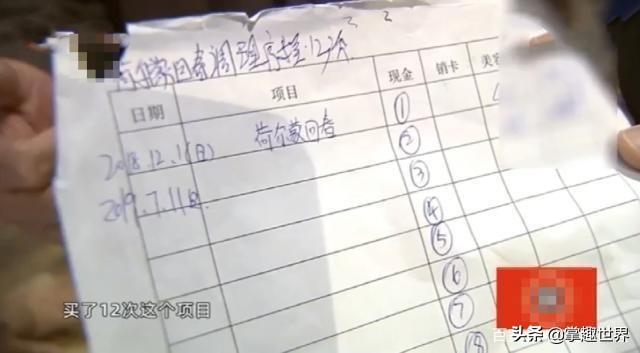 荷尔蒙回春调理疗程:12次
日期 项目 现金 销卡 美容
2018.12.1(日) 荷尔蒙回春 ①
2019.7.11 ②
③
④
⑤
⑥
⑦
⑧
买了12次这个项目
头条 @掌趣世界